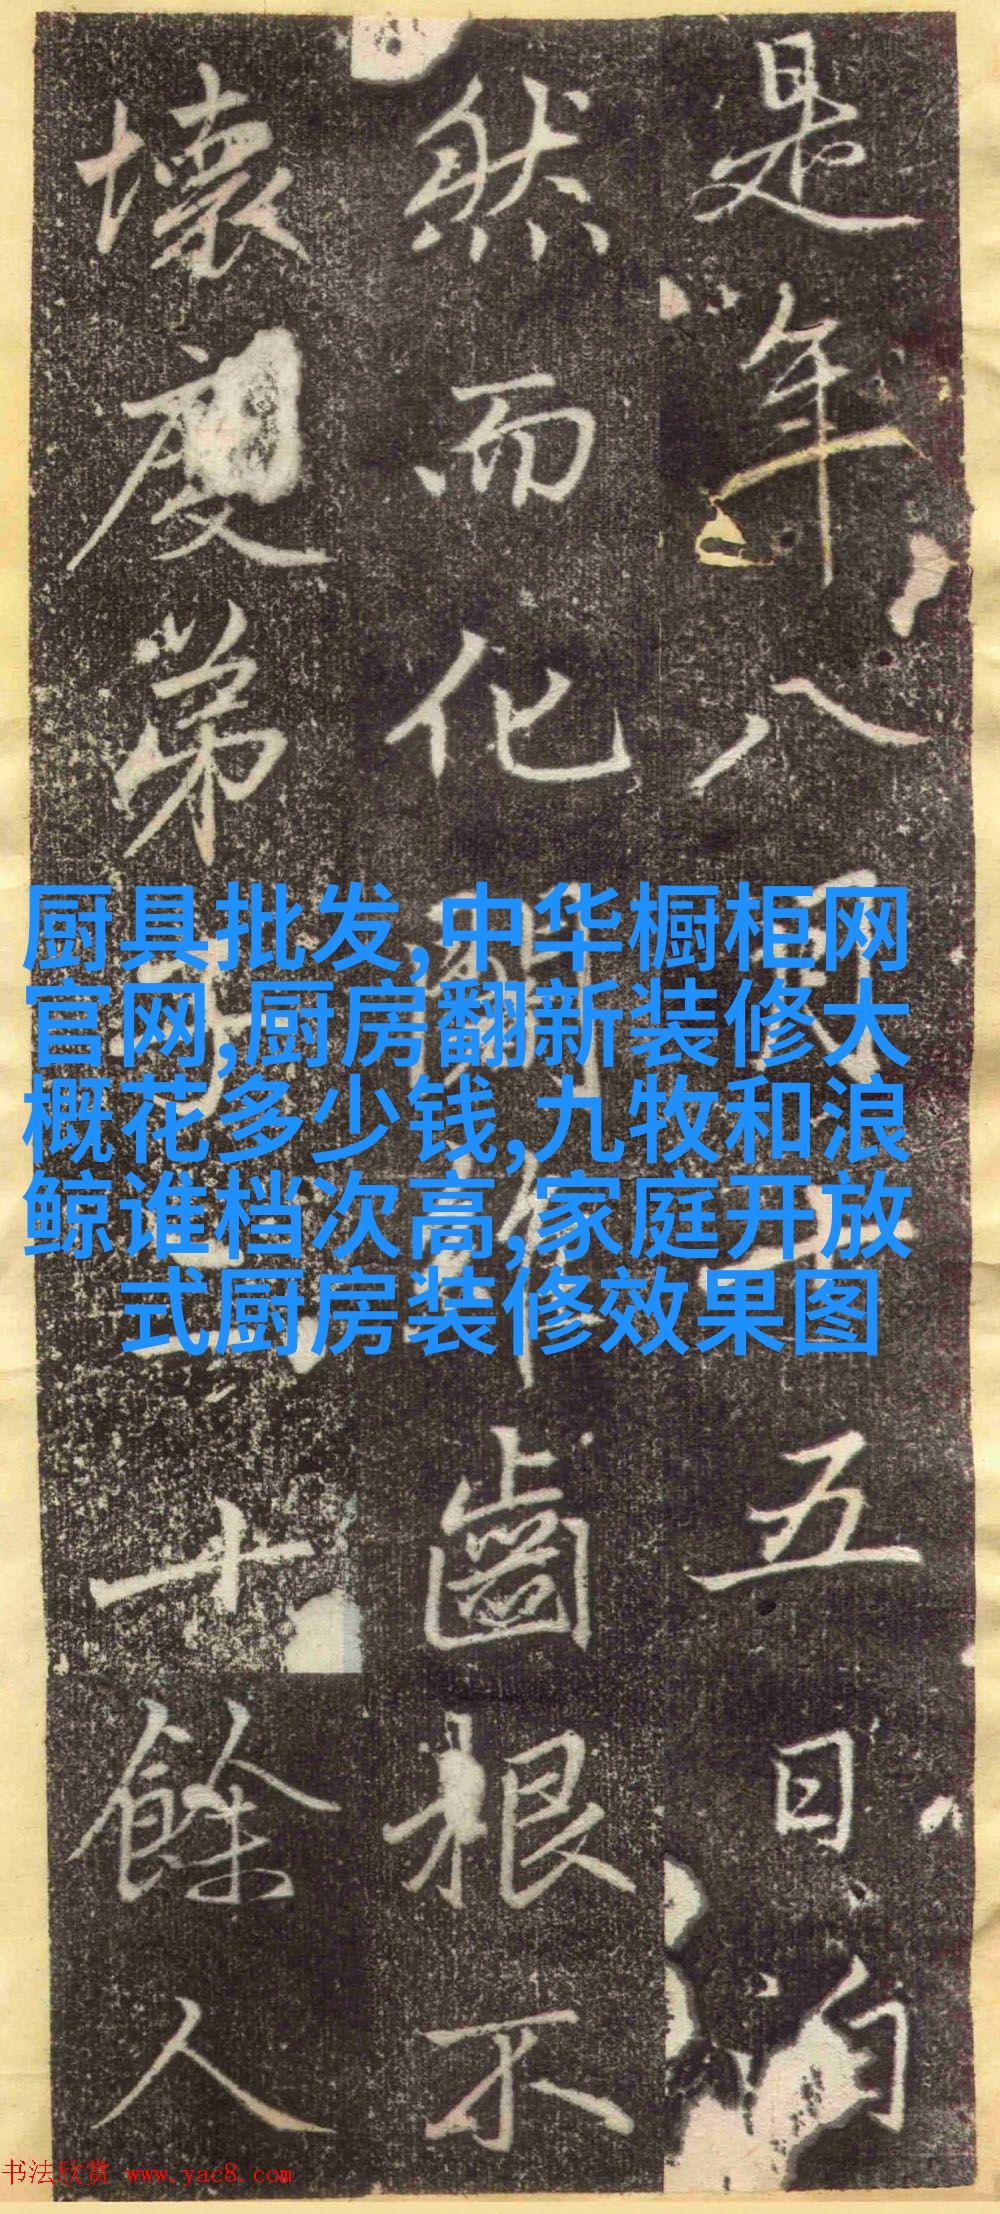 是年八月十五日自
然而化開齒根不
壞度弟十餘人
厨具批发,中华橱柜网
官网,厨房翻新装修大
概花多少钱,九牧和浪
鲸谁档次高,家庭开放
式厨房装修效果图
书法欣赏 www.yac8.com